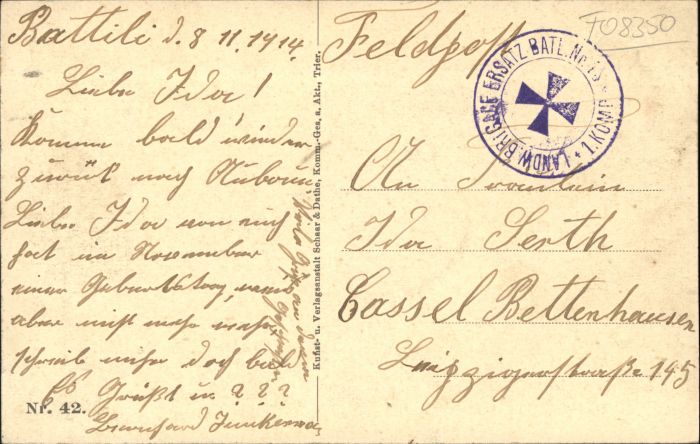 Battili d. 8 11. 1914.
Liebe Ida!
Komme bald wieder
zurück nach
Liebe Ida von euch
hat im November
einer Geburtstag,
aber nicht mehr
schreib mir doch bald
Es Grüßt u ? ? ?
Bernhard
Nr. 42.
Kunst- u. Verlagsanstalt Schaar & Dathe, Komm.-Ges. a. Akt., Trier.
Feldpost
F08350
LANDW. BRIGADE ERSATZ BATL. Nr. * 1. KOMP.
An Fräulein
Ida Serth
Cassel Bettenhausen
Leipzigerstraße 145